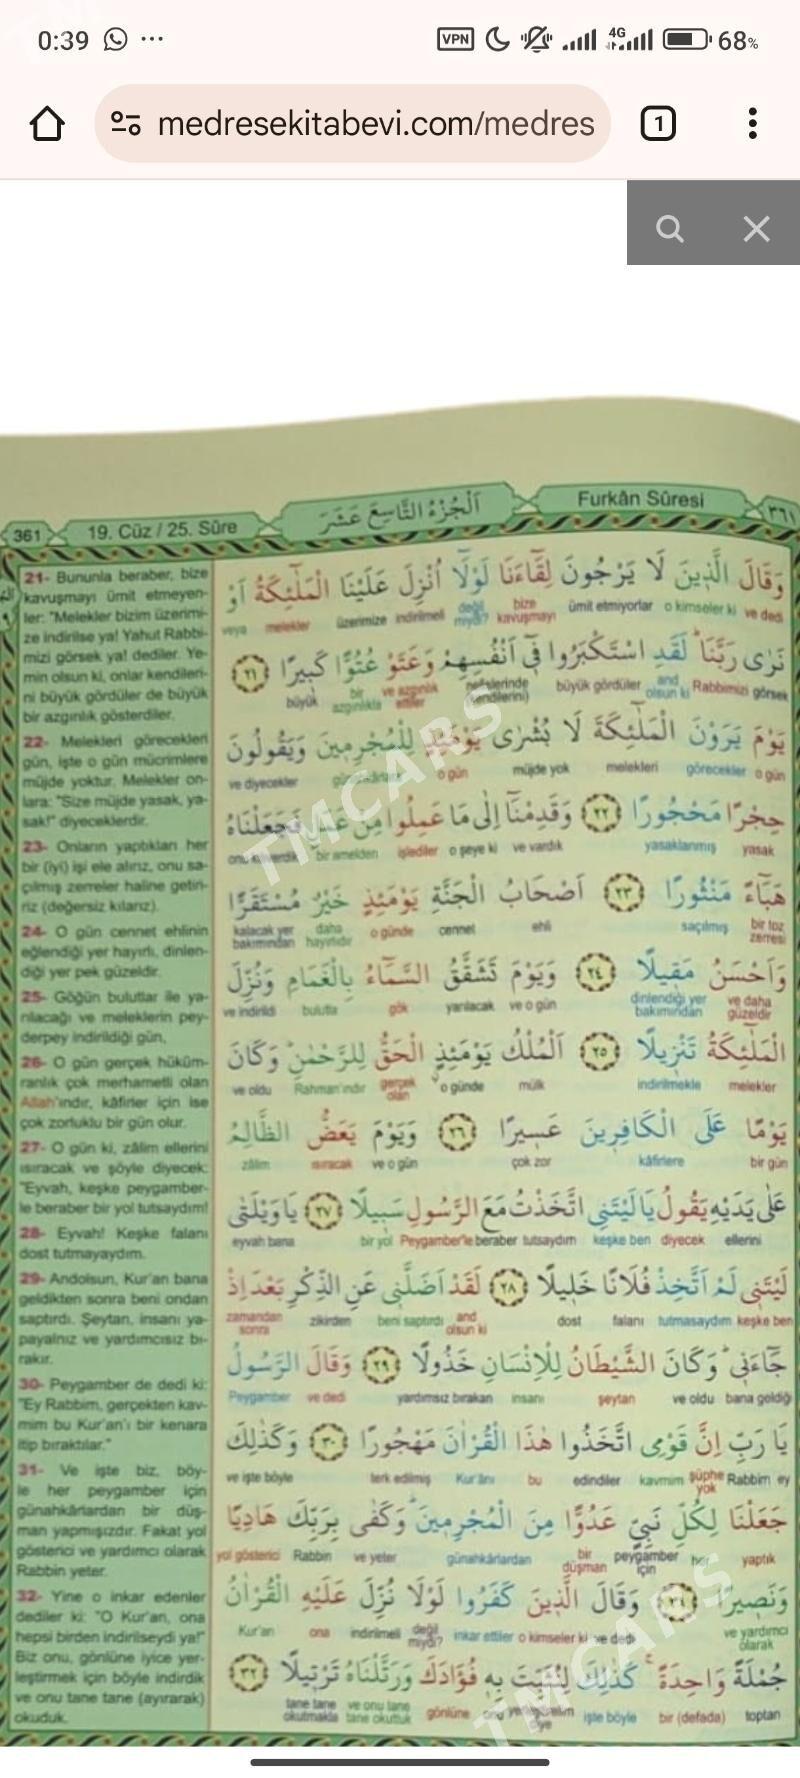 0:39
VPN
4G
68%
medresekitabevi.com/medres
1
361
19. Cüz / 25. Sûre
اَلْجُزْءُ التَّاسِعَ عَشَرَ
Furkân Sûresi
٣٦١
21- Bununla beraber, bize
kavuşmayı ümit etmeyen-
ler: "Melekler bizim üzerimi-
ze indirilse ya! Yahut Rabbi-
mizi görsek ya! dediler. Ye-
min olsun ki, onlar kendileri-
ni büyük gördüler de büyük
bir azgınlık gösterdiler.
22- Melekleri görecekleri
gün, işte o gün mücrimlere
müjde yoktur. Melekler on-
lara: "Size müjde yasak, ya-
sak!" diyeceklerdir.
23- Onların yaptıkları her
bir (iyi) işi ele alırız, onu sa-
çılmış zerreler haline getiri-
riz (değersiz kılarız).
24- O gün cennet ehlinin
eğlendiği yer hayırlı, dinlen-
diği yer pek güzeldir.
25- Göğün bulutlar ile ya-
rılacağı ve meleklerin pey-
derpey indirildiği gün,
26- O gün gerçek hüküm-
ranlık çok merhametli olan
Allah'ındır, kâfirler için ise
çok zorluklu bir gün olur.
27- O gün ki, zâlim ellerini
ısıracak ve şöyle diyecek:
"Eyvah, keşke peygamber-
le beraber bir yol tutsaydım!
28- Eyvah! Keşke falanı
dost tutmayaydım.
29- Andolsun, Kur'an bana
geldikten sonra beni ondan
saptırdı. Şeytan, insanı ya-
payalnız ve yardımcısız bı-
rakır.
30- Peygamber de dedi ki:
"Ey Rabbim, gerçekten kav-
mim bu Kur'an'ı bir kenara
itip bıraktılar."
31- Ve işte biz, böy-
le her peygamber için
günahkârlardan bir düş-
man yapmışızdır. Fakat yol
gösterici ve yardımcı olarak
Rabbin yeter.
32- Yine o inkar edenler
dediler ki: "O Kur'an, ona
hepsi birden indirilseydi ya!"
Biz onu, gönlüne iyice yer-
leştirmek için böyle indirdik
ve onu tane tane (ayırarak)
okuduk.
وَقَالَ الَّذِينَ لَا يَرْجُونَ لِقَٓاءَنَا لَوْلَٓا اُنْزِلَ عَلَيْنَا الْمَلٰٓئِكَةُ اَوْ
ve dedi o kimseler ki ümit etmiyorlar bize kavuşmayı değil miydi? indirilmeli üzerimize melekler veya
نَرٰى رَبَّنَا لَقَدِ اسْتَكْبَرُوا فٖٓي اَنْفُسِهِمْ وَعَتَوْ عُتُوًّا كَبٖيرًا ٢١
Rabbimizi görsek and olsun ki büyük gördüler nefislerinde (kendilerini) ve azgınlık ettiler bir azgınlıkla büyük
يَوْمَ يَرَوْنَ الْمَلٰٓئِكَةَ لَا بُشْرٰى يَوْمَئِذٍ لِلْمُجْرِمٖينَ وَيَقُولُونَ
o gün görecekler melekleri müjde yok o gün ve diyecekler
حِجْرًا مَحْجُورًا ٢٢ وَقَدِمْنَٓا اِلٰى مَا عَمِلُوا مِنْ عَمَلٍ فَجَعَلْنَاهُ
yasak yasaklanmış ve vardık o şeye ki işlediler bir amelden
هَبَٓاءً مَنْثُورًا ٢٣ اَصْحَابُ الْجَنَّةِ يَوْمَئِذٍ خَيْرٌ مُسْتَقَرًّا
bir toz zerresi saçılmış ehli cennet o günde daha hayırlıdır kalacak yer bakımından
وَاَحْسَنُ مَقٖيلًا ٢٤ وَيَوْمَ تَشَقَّقُ السَّمَٓاءُ بِالْغَمَامِ وَنُزِّلَ
ve daha güzeldir dinlendiği yer bakımından ve o gün yarılacak gök bulutla ve indirildi
الْمَلٰٓئِكَةُ تَنْزٖيلًا ٢٥ اَلْمُلْكُ يَوْمَئِذٍ الْحَقُّ لِلرَّحْمٰنِ وَكَانَ
melekler indirilmekle mülk o günde gerçek olan Rahman'ındır ve oldu
يَوْمًا عَلَى الْكَافِرٖينَ عَسٖيرًا ٢٦ وَيَوْمَ يَعَضُّ الظَّالِمُ
bir gün kâfirlere çok zor ve o gün ısıracak zâlim
عَلٰى يَدَيْهِ يَقُولُ يَا لَيْتَنِي اتَّخَذْتُ مَعَ الرَّسُولِ سَبٖيلًا ٢٧ يَا وَيْلَتٰى
ellerini diyecek keşke ben tutsaydım Peygamber'le beraber bir yol eyvah bana
لَيْتَنٖي لَمْ اَتَّخِذْ فُلَانًا خَلٖيلًا ٢٨ لَقَدْ اَضَلَّنٖي عَنِ الذِّكْرِ بَعْدَ اِذْ
keşke ben tutmasaydım falanı dost and olsun ki beni saptırdı zikirden zamandan sonra
جَٓاءَنٖي وَكَانَ الشَّيْطَانُ لِلْاِنْسَانِ خَذُولًا ٢٩ وَقَالَ الرَّسُولُ
bana geldiği ve oldu şeytan insanı yardımsız bırakan ve dedi Peygamber
يَا رَبِّ اِنَّ قَوْمِي اتَّخَذُوا هٰذَا الْقُرْاٰنَ مَهْجُورًا ٣٠ وَكَذٰلِكَ
Rabbim ey şüphe yok kavmim edindiler bu Kur'ânı terk edilmiş ve işte böyle
جَعَلْنَا لِكُلِّ نَبِيٍّ عَدُوًّا مِنَ الْمُجْرِمٖينَ وَكَفٰى بِرَبِّكَ هَادِيًا
yaptık her peygamber için bir düşman günahkârlardan ve yeter Rabbin yol gösterici
وَنَصٖيرًا ٣١ وَقَالَ الَّذٖينَ كَفَرُوا لَوْلَا نُزِّلَ عَلَيْهِ الْقُرْاٰنُ
ve yardımcı olarak ve dedi o kimseler ki inkar ettiler değil miydi? indirilmeli ona Kur'an
جُمْلَةً وَاحِدَةً كَذٰلِكَ لِنُثَبِّتَ بِهٖ فُؤٰادَكَ وَرَتَّلْنَاهُ تَرْتٖيلًا ٣٢
toptan bir (defada) işte böyle gönlüne ve onu tane tane okuttuk tane tane okutmakla
TMCARS
TMCARS